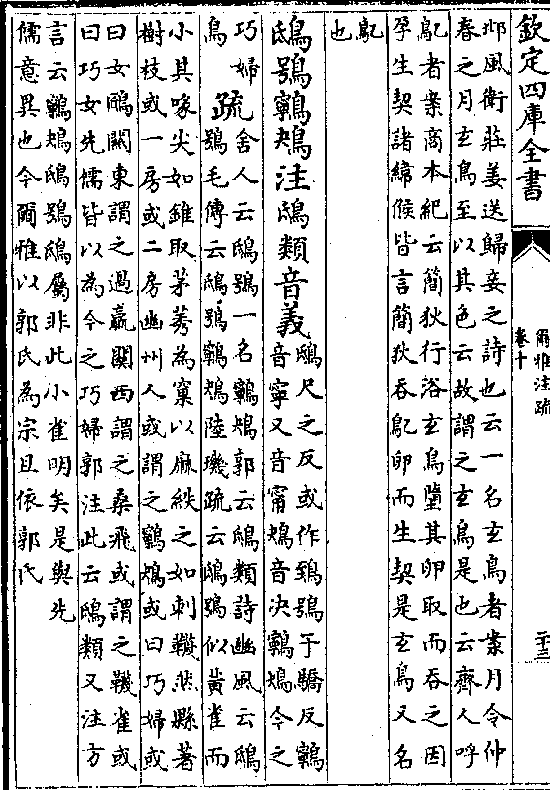 欽定四庫全書
爾雅注疏
卷十
二十三
邶風衛莊姜送歸妾之詩也云一名玄鳥者案月令仲
春之月玄鳥至以其色云故謂之玄鳥是也云齊人呼
鳦者案商本紀云簡狄行浴玄鳥墮其卵取而吞之因
孕生契諸緯候皆言簡狄吞鳦卵而生契是玄鳥又名
鳦
也
鴟鴞鸋鴂注鴟類音義
鴟尺之反或作鵄鴞于驕反鸋
音寧又音甯鴂音决鸋鴂今之
巧婦
鳥
疏
舍人云鴟鴞一名鸋鴂郭云鴟類詩豳風云鴟
鴞毛傳云鴟鴞鸋鴂陸璣疏云鴟鴞似黄雀而
小其喙尖如錐取茅莠為窠以麻紩之如刺韈然縣著
樹枝或一房或二房幽州人或謂之鸋鴂或曰巧婦或
曰女鴎關東謂之過羸關西謂之桑飛或謂之韈雀或
曰巧女先儒皆以為今之巧婦郭注此云鴟類又注方
言云鸋鴂鴟鴞鴟屬非此小雀明矣是與先
儒意異也今爾雅以郭氏為宗且依郭氏